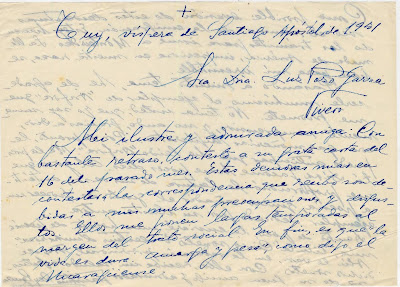 +
Tuy, víspera de Santiago Apóstol de 1941
Sra Dña. Luz Pozo Garza
Vivero
Mi ilustre y admirada amiga: Con
bastante retraso, contesto a su grata carta del
16 del pasado mes. Estas demoras mias en
contestar la correspondencia que recibo son de-
bidas a mis muchas preocupaciones y disgus-
tos. Ellos me ponen largas temporadas al
margen del trato social. En fin, es que la
vida es dura amarga y pesa; como dijo el
Nicaragüense